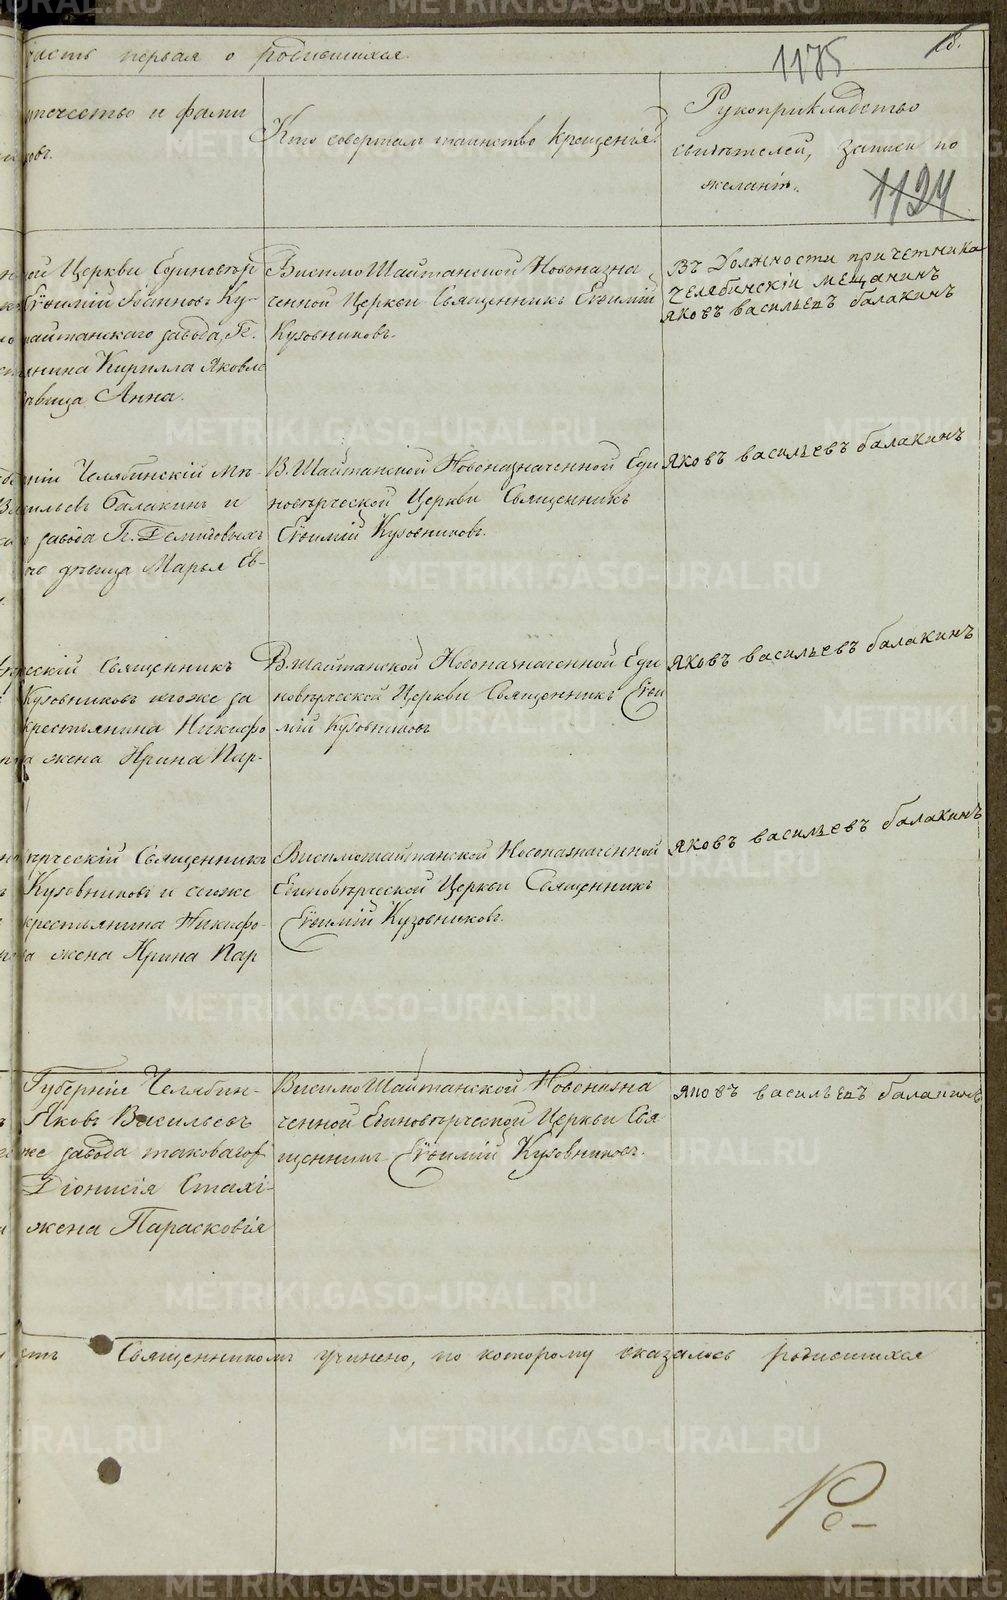 часть первая о родившихся.
1175
18.
отечество и фами
ковъ.
Кто совершалъ таинство крещенія?
Рукоприкладство
свидѣтелей, записи по
желанію.
1124
ной Церкви Единовѣр
Евѳимій Іоанновъ Ку-
шайтанскаго завода, Г.
янина Кирилла Яковле
дѣвица Анна.
ВисимоШайтанской Новоназна
ченной Церкви Священникъ Евѳимій
Кузовниковъ.
Въ Должности причетника
Челябинскій мещанинъ
яковъ васильевъ балакинъ
Челябинскій Мѣ-
Васильевъ Балакинъ и
завода Г. Демидовыхъ
дѣвица Марья Ев-
В.Шайтанской Новоназначенной Еди
новѣрческой Церкви Священникъ
Евѳимій Кузовниковъ.
яковъ васильевъ балакинъ
ческій Священникъ
Кузовниковъ тогоже за
крестьянина Никифо
жена Ирина Пар-
В.Шайтанской Новоназначенной Еди
новѣрческой Церкви Священникъ Евѳи
мій Кузовниковъ
яковъ васильевъ балакинъ
ѣрческій Священникъ
Кузовниковъ и сегоже
крестьянина Никифо-
жена Ирина Пар
Висимошайтанской Новоназначенной
Единовѣрческой Церкви Священникъ
Евѳимій Кузовниковъ.
яковъ васильевъ балакинъ
Губерніи Челябин-
Яковъ Васильевъ
же завода таковагоѳ
Діонисія Стахі-
жена Парасковія
ВисимоШайтанской Новоназна
ченной Единовѣрческой Церкви Свя
щенникъ Евѳимій Кузовниковъ.
яковъ васильевъ балакинъ
Священникомъ учинено, по которому оказалось родившихся
Ре-
METRIKI.GASO-URAL.RU